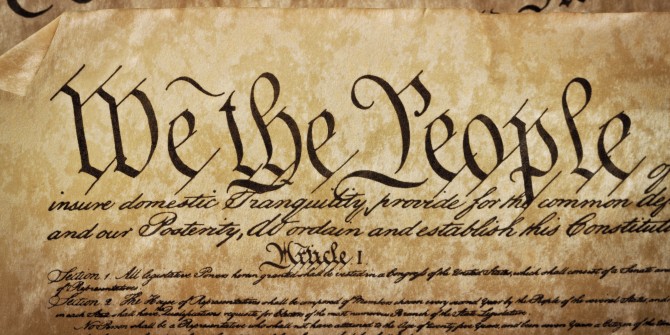 We the People of
insure domestic Tranquility, provide for the common def
and our Posterity, do ordain and establish this Constitut
Article I
Section 1 All legislative Powers herein granted shall be vested in a Congress of the United States, which shall consist of a Senate and
of Representatives.
Section 2. The House of Representatives shall be composed of Members chosen every second Year by the People of the several States, and
in each State shall have Qualifications requisite for Electors of the most numerous Branch of the State Legislature.
No Person shall be a Representative who shall not have attained to the Age of twenty five Years, and been seven Years a Citizen of the